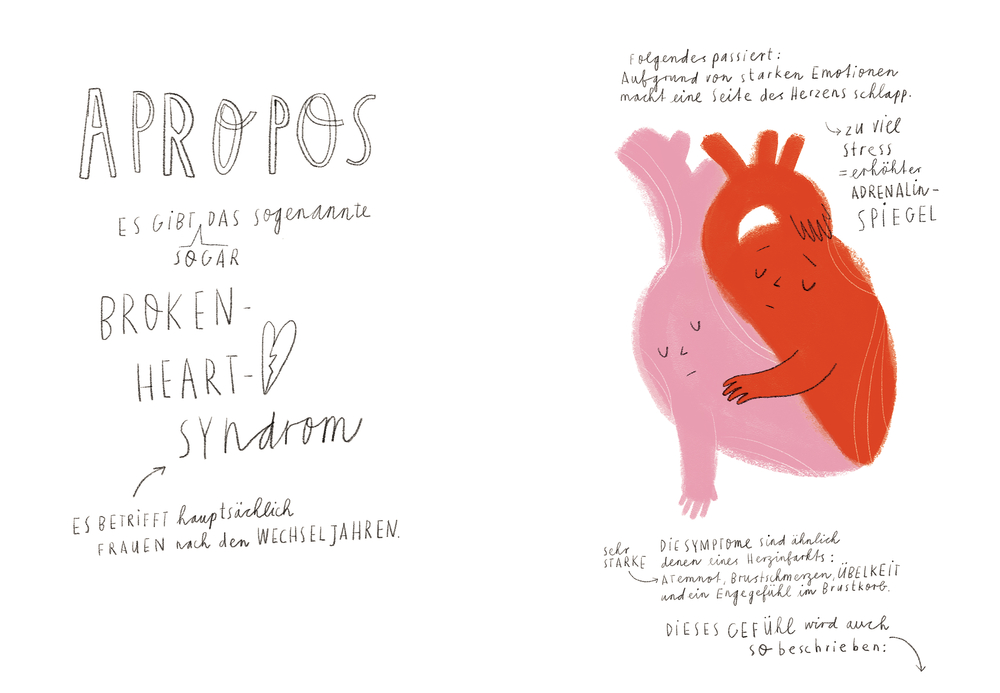 APROPOS
ES GIBT DAS sogenannte
SOGAR
BROKEN-
HEART-
SYndrom
ES BETRIFFT hauptsächlich
FRAUEN nach den WECHSELJAHREN.
Folgendes passiert:
Aufgrund von starken Emotionen
macht eine Seite des Herzens schlapp.
zu viel
Stress
= erhöhter
ADRENALIN-
SPIEGEL
sehr
STARKE
DIE SYMPTOME sind ähnlich
denen eines Herzinfarkts:
ATEMNOT, Brustschmerzen, ÜBELKEIT
und ein Engegefühl im Brustkorb.
DIESES GEFÜHL wird auch
SO beschrieben: